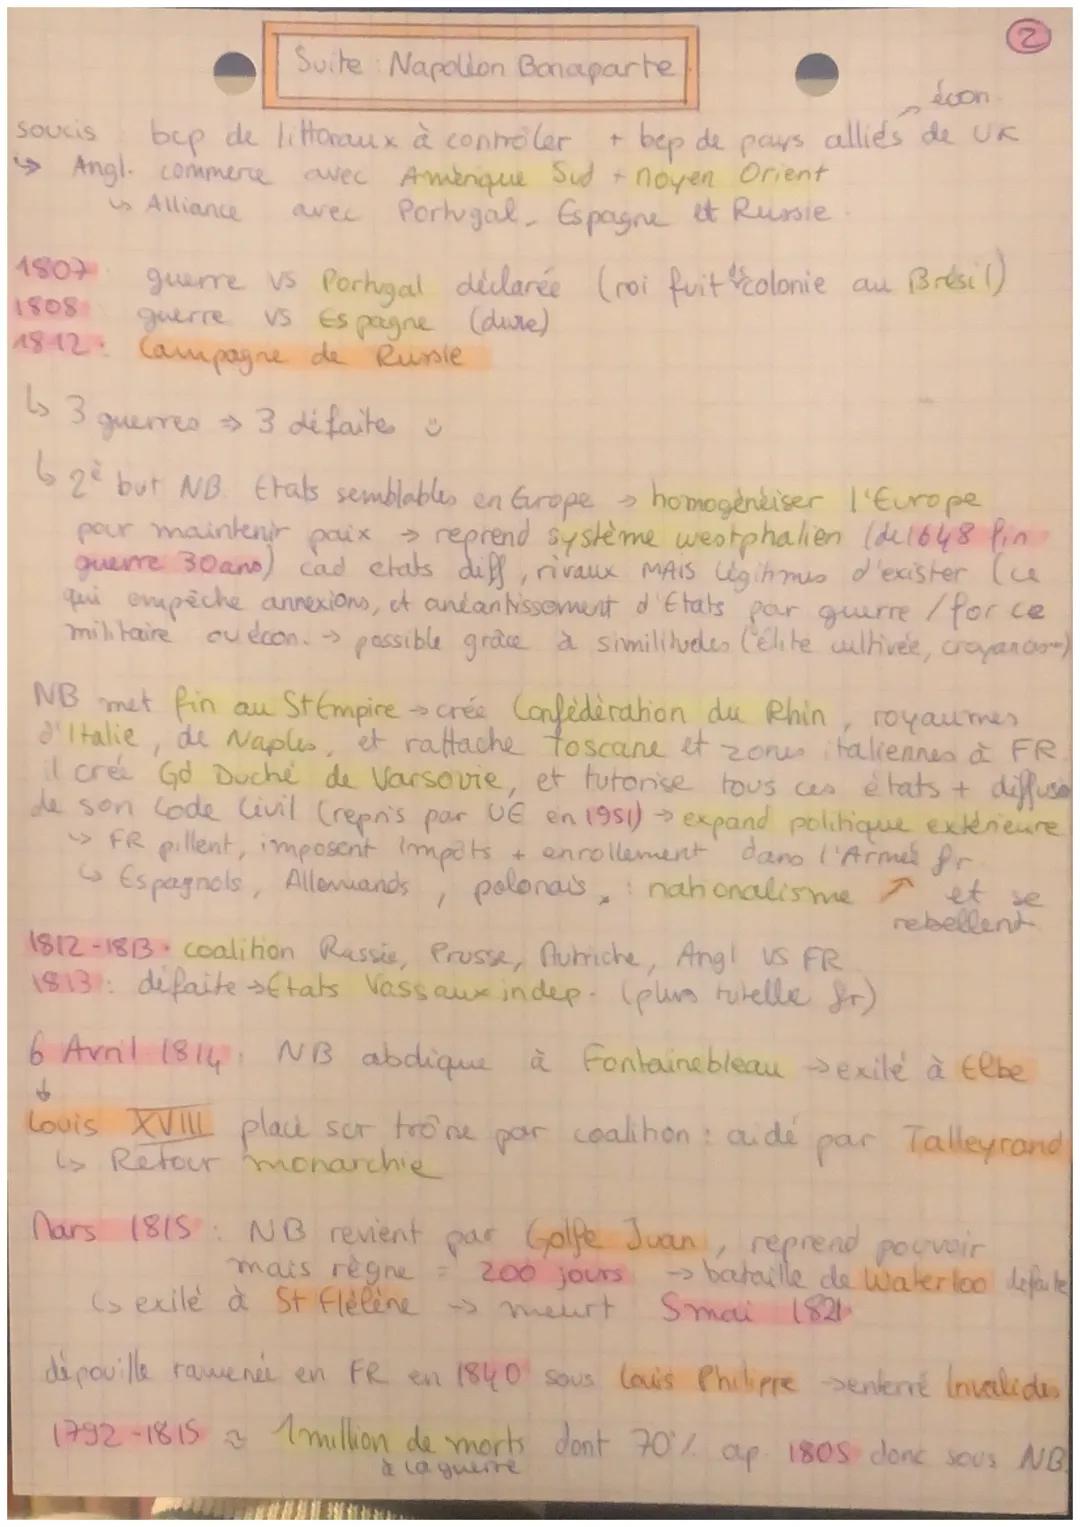 2
Suite : Napoléon Bonaparte
écon.
soucis : bcp de littoraux à contrôler + bcp de pays alliés de UK
↳ Angl. commerce avec Amérique Sud + Moyen Orient
↳ Alliance avec Portugal, Espagne et Russie.
1807 : guerre vs Portugal déclarée (roi fuit ds colonie au Brésil)
1808 : guerre vs Espagne (dure)
1812 : Campagne de Russie
↳ 3 guerres ⇒ 3 défaites
↳ 2è but NB : Etats semblables en Europe → homogénéiser l'Europe
pour maintenir paix → reprend système westphalien (de 1648 fin
guerre 30 ans) cad etats diff, rivaux MAIS légitimes d'exister (ce
qui empêche annexions, et anéantissement d'Etats par guerre / force
militaire ou écon. → possible grâce à similitudes (élite cultivée, croyances...)
NB met fin au St Empire → crée Confédération du Rhin, royaumes
d'Italie, de Naples, et rattache Toscane et zones italiennes à FR.
il crée Gd Duché de Varsovie, et tutorise tous ces états + diffuse
de son Code Civil (repris par UE en 1951) → expand politique extérieure
↳ FR pillent, imposent impôts + enrollement dans l'Armée fr.
↳ Espagnols, Allemands, polonais, : nationalisme ↗ et se
rebellent.
1812-1813 : coalition Russie, Prusse, Autriche, Angl vs FR
1813 : défaite → Etats Vassaux indep. (plus tutelle fr)
6 Avril 1814 : NB abdique à Fontainebleau → exilé à Elbe
↓
Louis XVIII placé sur trône par coalition : aidé par Talleyrand
↳ Retour monarchie
Mars 1815 : NB revient par Golfe Juan, reprend pouvoir
mais règne = 200 jours → bataille de Waterloo défaite
↳ exilé à St Hélène → meurt 5 mai 1821
dépouille ramenée en FR en 1840 sous Louis Philippe → enterré Invalides
1792-1815 ≈ 1 million de morts dont 70% ap. 1805 donc sous NB.
à la guerre